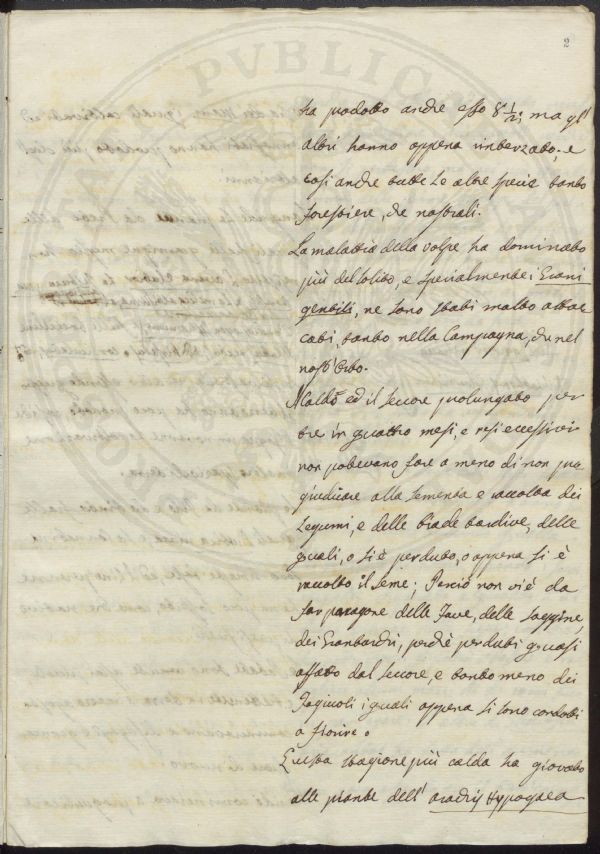 2
ha prodotto anche esso 8 1/2, ma gl'
altri hanno appena rinterzato, e
così anche tutte le altre specie tanto
forestiere, che nostrali.
La malattia della volpe ha dominato
più del solito, e specialmente i Grani
gentili, ne sono stati molto attac
cati, tanto nella Campagna, che nel
nostr' Orto.
Il caldo ed il seccore prolungato per
tre in quattro mesi, e resi eccessivi
non potevano fare a meno di non pre
giudicare alla sementa e raccolta dei
Legumi, e delle biade tardive, delle
quali, o si è perduto, o appena si è
raccolto il seme; Perciò non vi è da
far paragone delle Fave, delle saggine,
dei Granturchi, perchè perduti quasi
affatto dal seccore, e tanto meno dei
Fagiuoli i quali appena si sono condotti
a fiorire.
Questa stagione più calda ha giovato
alle piante dell' arachis Hypogaea